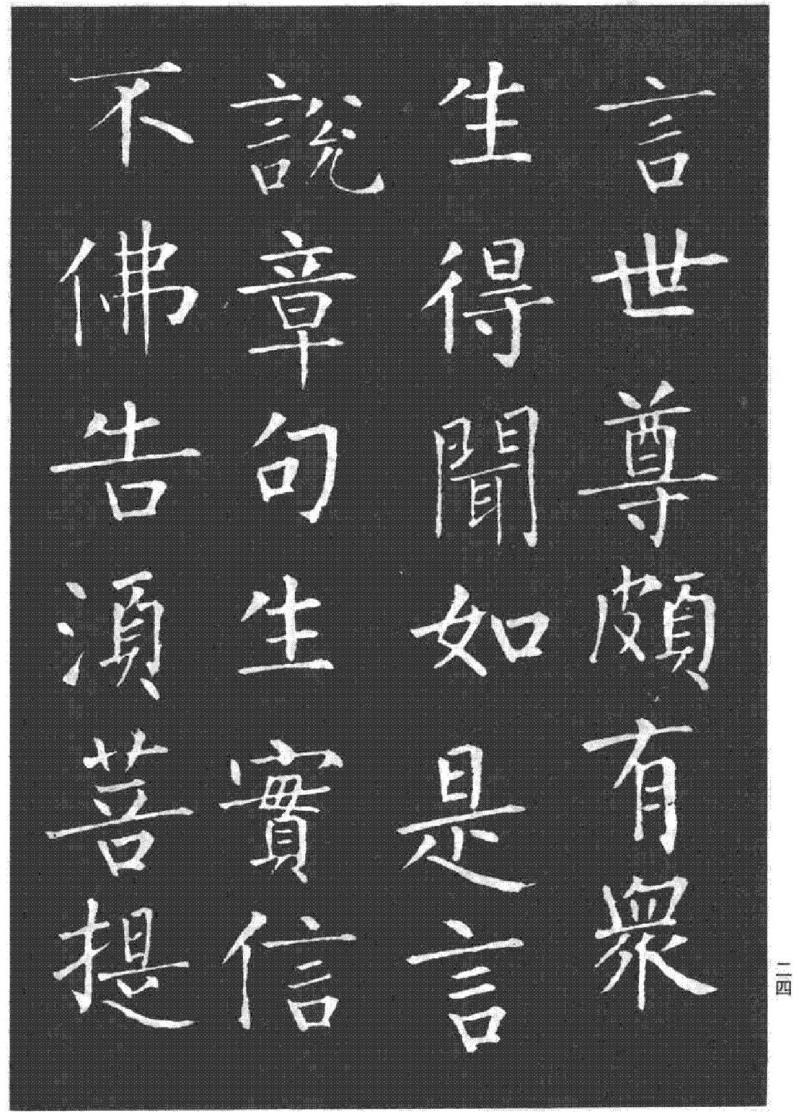 言世尊頗有衆
生得聞如是言
說章句生實信
不佛告湏菩提
二四